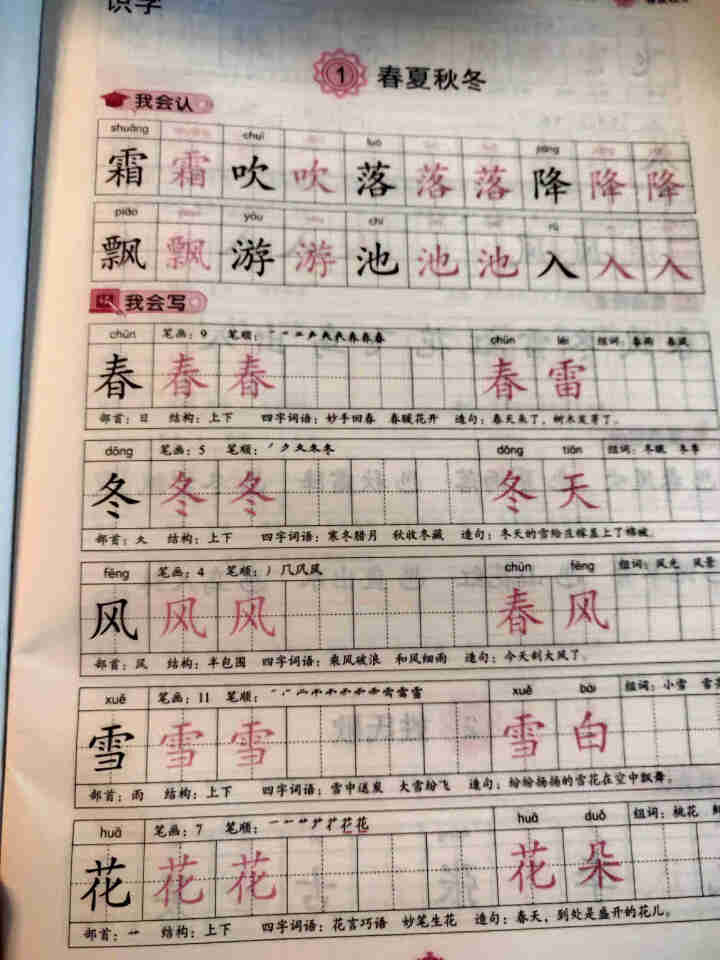 识字
1 春夏秋冬
我会认
shuāng chuī luò jiàng
霜 霜 吹 吹 落 落 落 降 降 降
piāo yóu chí rù
飘 飘 游 游 池 池 池 入 入 入
我会写
chūn 笔画：9 笔顺： chūn léi 组词：春雨 春风
春 春 春 春 雷
部首：日 结构：上下 四字词语：妙手回春 春暖花开 造句：春天来了，树木发芽了。
dōng 笔画：5 笔顺： dōng tiān 组词：冬眠 冬季
冬 冬 冬 冬 天
部首：夂 结构：上下 四字词语：寒冬腊月 秋收冬藏 造句：冬天的雪给庄稼盖上了棉被。
fēng 笔画：4 笔顺： chūn fēng 组词：风光 风景
风 风 风 春 风
部首：风 结构：半包围 四字词语：乘风破浪 和风细雨 造句：今天刮大风了。
xuě 笔画：11 笔顺： xuě bái 组词：小雪
雪 雪 雪 雪 白
部首：雨 结构：上下 四字词语：雪中送炭 大雪纷飞 造句：纷纷扬扬的雪花在空中飘舞。
huā 笔画：7 笔顺： huā duǒ 组词：桃花
花 花 花 花 朵
部首：艹 结构：上下 四字词语：花言巧语 妙笔生花 造句：春天，到处是盛开的花儿。